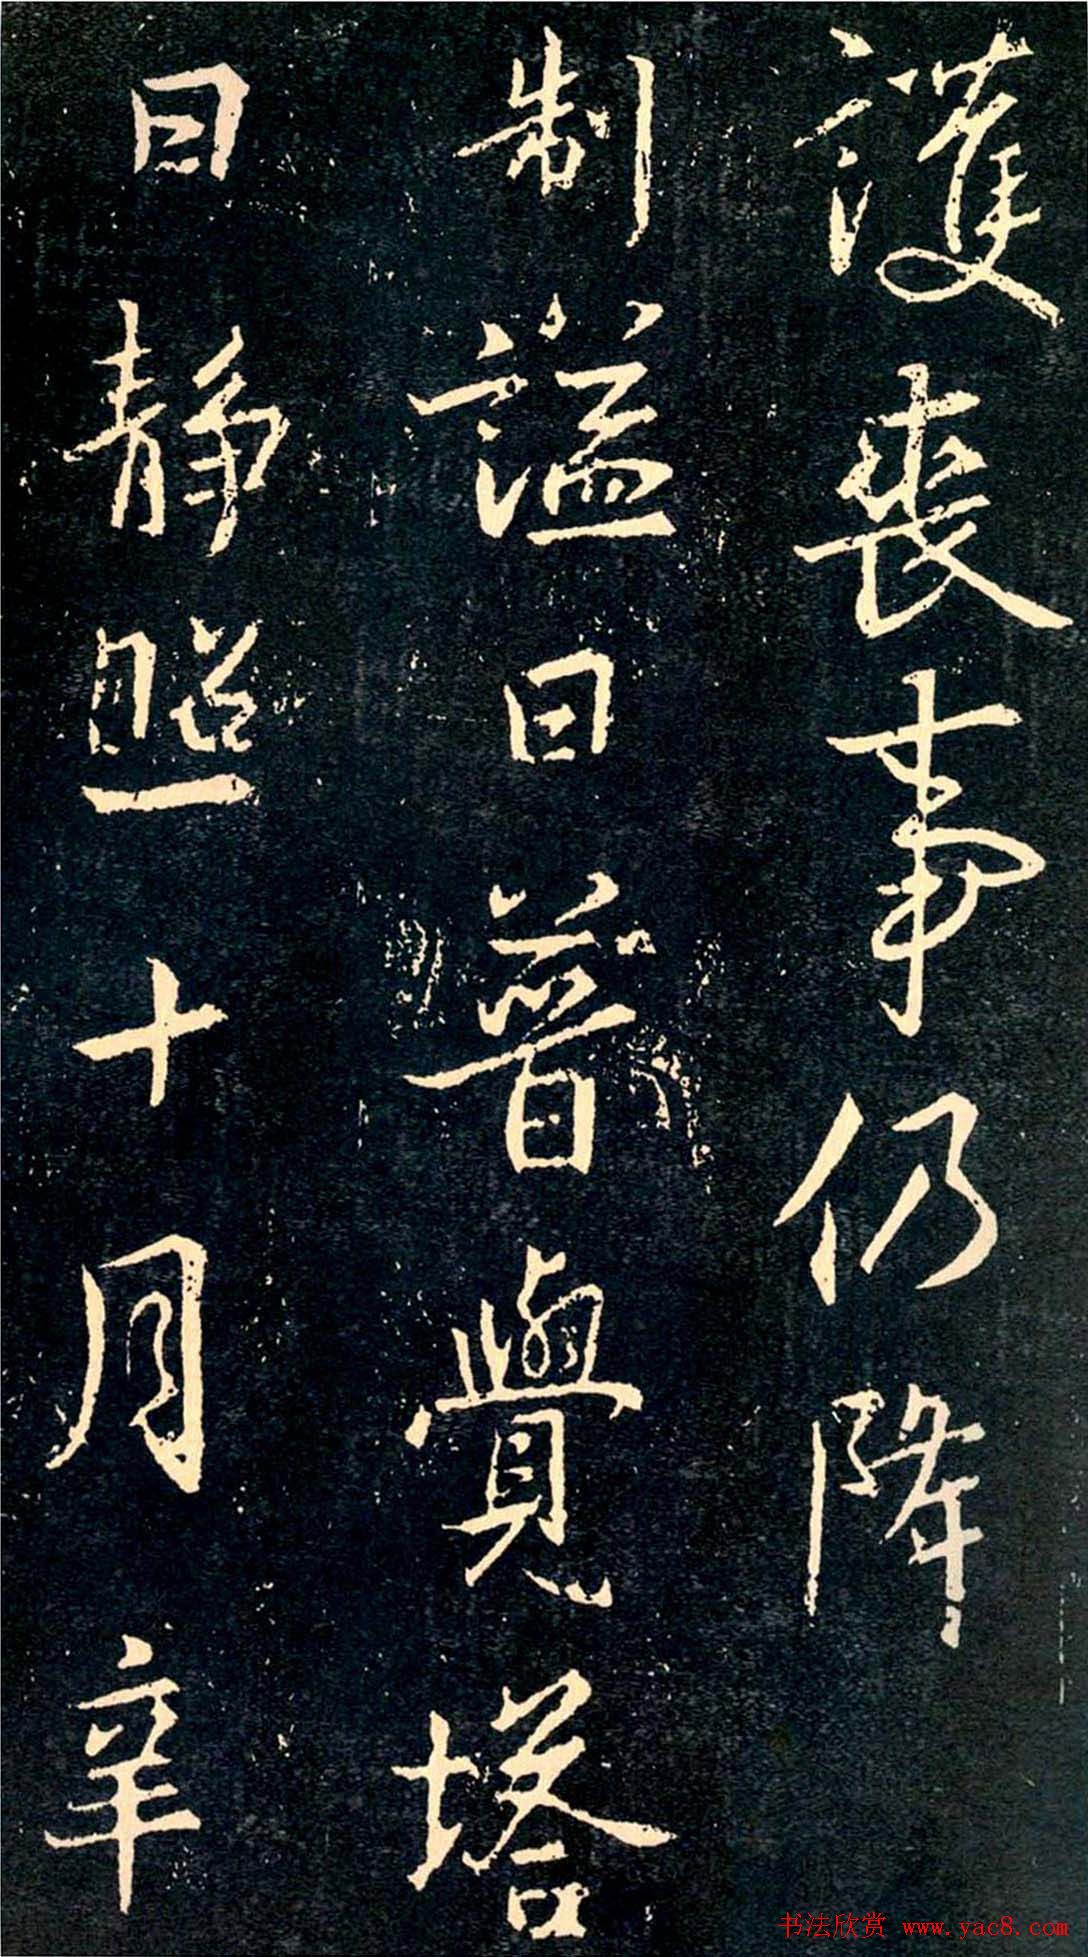 護喪事仍降
制謚曰普覺塔
曰靜照十月辛
书法欣赏 www.yac8.com